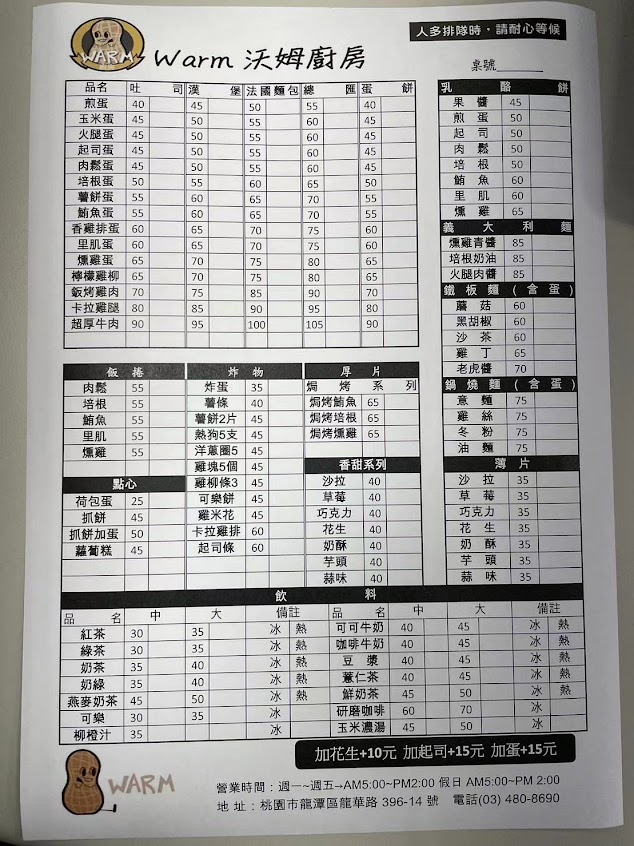 人多排隊時，請耐心等候
WARM
Warm 沃姆廚房
桌號
品名 吐司 漢堡 法國麵包 總匯 蛋餅
煎蛋 40 45 50 55 40
玉米蛋 45 50 55 60 45
火腿蛋 45 50 55 60 45
起司蛋 45 50 55 60 45
肉鬆蛋 45 50 55 60 45
培根蛋 50 55 60 65 50
薯餅蛋 55 60 65 70 55
鮪魚蛋 55 60 65 70 55
香雞排蛋 60 65 70 75 60
里肌蛋 60 65 70 75 60
燻雞蛋 65 70 75 80 65
檸檬雞柳 65 70 75 80 65
瓫烤雞肉 70 75 85 90 70
卡拉雞腿 80 85 90 95 80
超厚牛肉 90 95 100 105 90
乳酪餅
果醬 45
煎蛋 50
起司 50
肉鬆 50
培根 50
鮪魚 60
里肌 60
燻雞 65
義大利麵
燻雞青醬 85
培根奶油 85
火腿肉醬 85
鐵板麵(含蛋)
蘑菇 60
黑胡椒 60
沙茶 60
雞丁 65
老虎醬 70
鍋燒麵(含蛋)
意麵 75
雞絲 75
冬粉 75
油麵 75
薄片
沙拉 35
草莓 35
巧克力 35
花生 35
奶酥 35
芋頭 35
蒜味 35
飯捲
肉鬆 55
培根 55
鮪魚 55
里肌 55
燻雞 55
點心
荷包蛋 25
抓餅 45
抓餅加蛋 50
蘿蔔糕 45
炸物
炸蛋 35
薯條 40
薯餅2片 45
熱狗5支 45
洋蔥圈5 45
雞塊5個 45
雞柳條3 45
可樂餅 45
雞米花 45
卡拉雞排 60
起司條 60
厚片
焗烤系列
焗烤鮪魚 65
焗烤培根 65
焗烤燻雞 65
香甜系列
沙拉 40
草莓 40
巧克力 40
花生 40
奶酥 40
芋頭 40
蒜味 40
飲料
品名 中 大 備註 品名 中 大 備註
紅茶 30 35 冰 熱 可可牛奶 40 45 冰 熱
綠茶 30 35 冰 熱 咖啡牛奶 40 45 冰 熱
奶茶 35 40 冰 熱 豆漿 40 45 冰 熱
奶綠 35 40 冰 熱 薏仁茶 40 45 冰 熱
燕麥奶茶 45 50 冰 熱 鮮奶茶 45 50 冰 熱
可樂 30 35 冰 研磨咖啡 60 70 冰
柳橙汁 35 冰 玉米濃湯 45 50 冰
加花生+10元 加起司+15元 加蛋+15元
WARM
營業時間：週一~週五→AM5:00~PM2:00 假日 AM5:00~PM 2:00
地 址：桃園市龍潭區龍華路 396-14 號 電話(03) 480-8690